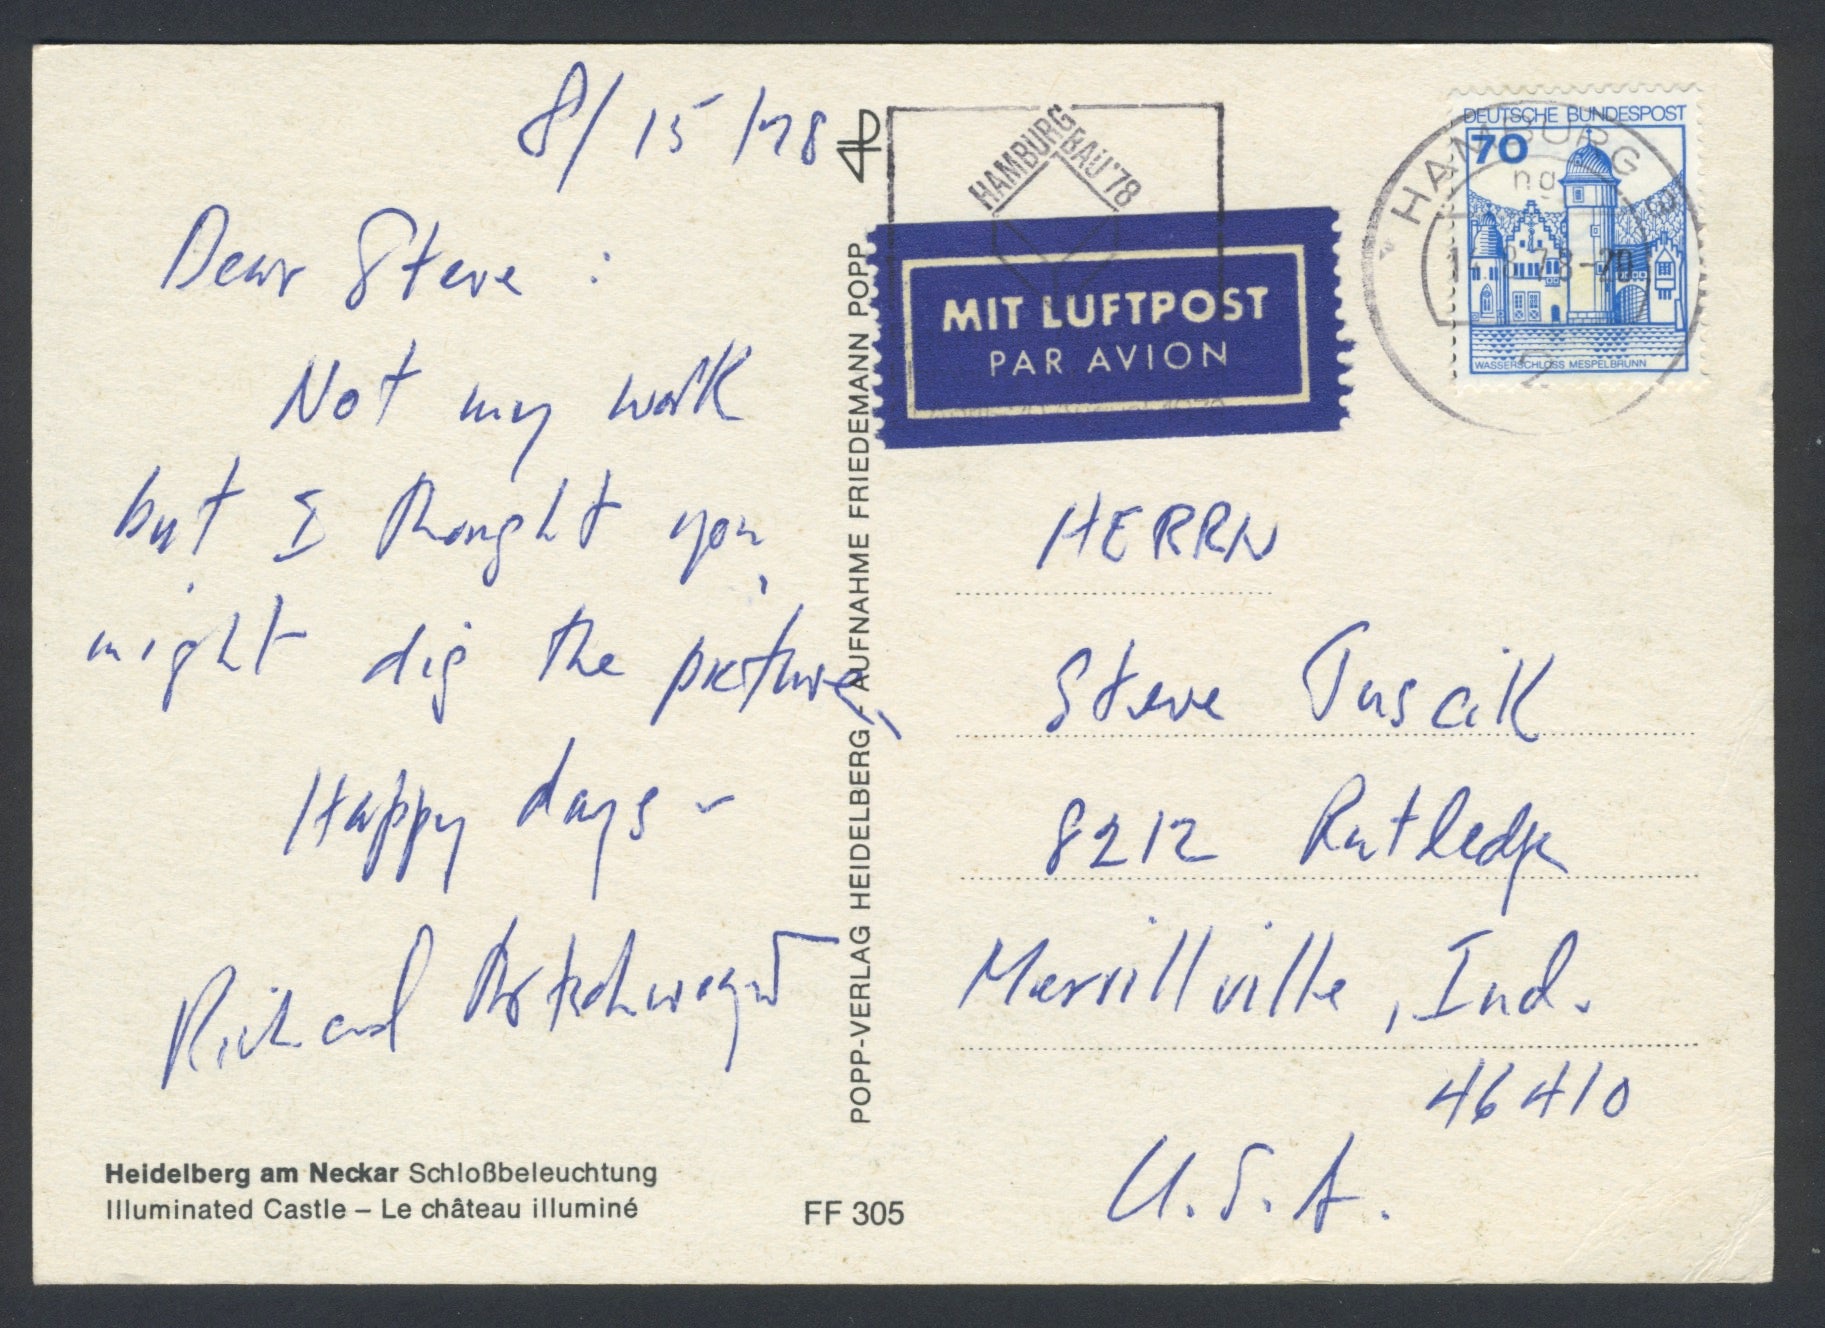 8/15/78
Dear Steve:
Not my work
but I thought you
might dig the picture,
Happy days –
Richard Artschwager
Heidelberg am Neckar Schloßbeleuchtung
Illuminated Castle – Le château illuminé
FF 305
POPP-VERLAG HEIDELBERG - AUFNAHME FRIEDEMANN POPP
HAMBURG BAU '78
MIT LUFTPOST
PAR AVION
DEUTSCHE BUNDESPOST
70
WASSERSCHLOSS MESPELBRUNN
HAMBURG
ng
8.78-20
2
HERRN
Steve Tuscik
8212 Rutledge
Merrillville, Ind.
46410
U.S.A.